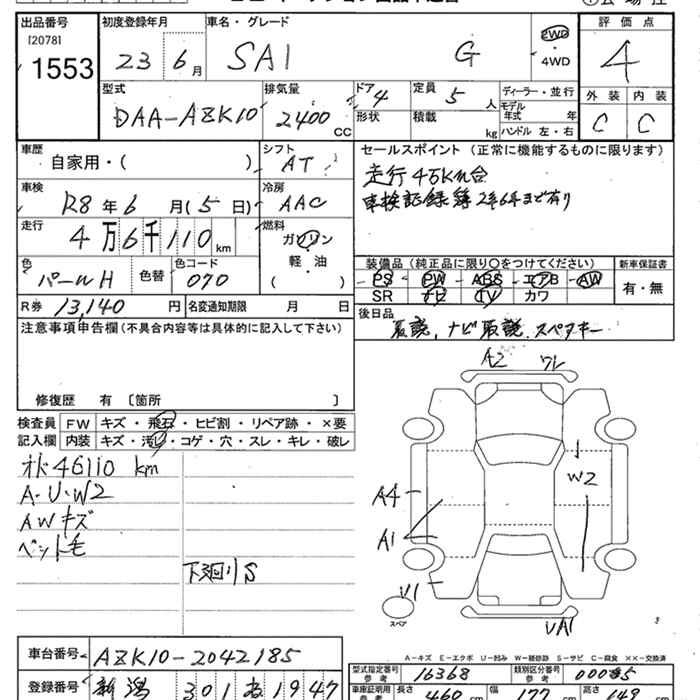 出品番号 初度登録年月 車名・グレード 評価点
[2078]
1553 23年 6月 SAI G 2WD・4WD 4
型式 排気量 ドア 定員 ディーラー・並行 外装 内装
DAA-AZK10 2400cc 4 5人 モデル年式 年 C C
形状 積載 kg ハンドル 左・右
車歴 シフト セールスポイント (正常に機能するものに限ります)
自家用・( ) AT 走行46km台
車検 冷房 車検記録簿2年6年まで有り
R8年6月(5日) AAC
走行 燃料
4万6千110km ガソリン
軽・油
( )
色 色コード 装備品 (純正品に限り○をつけてください) 新車保証書
パールH 色替 070 PS PW ABS エアB AW 有・無
SR ナビ TV カワ
R券 13,140円 名変通知期限 月 日 後日品
取説, ナビ取説, スペアキー
注意事項申告欄(不具合内容等は具体的に記入して下さい)
修復歴 有 〔箇所 〕
検査員 FW キズ・飛石・ヒビ割・リペア跡・×要
記入欄 内装 キズ・汚れ・コゲ・穴・スレ・キレ・破レ
A2 ワレ
46110 km
A・U・W2
AWキズ
ペット毛
下廻りS
W2
A4
A1
V1
スペア
VA1
A-キズ E-エクボ U-凹み W-補修跡 S-サビ C-腐食 ××-交換済
車台番号 AZK10-2042185
型式指定番号 参考 16368 類別区分番号 参考
登録番号 新潟 301 1947
車庫証明用 参考 長さ 460cm 幅 177cm 高さ 149cm